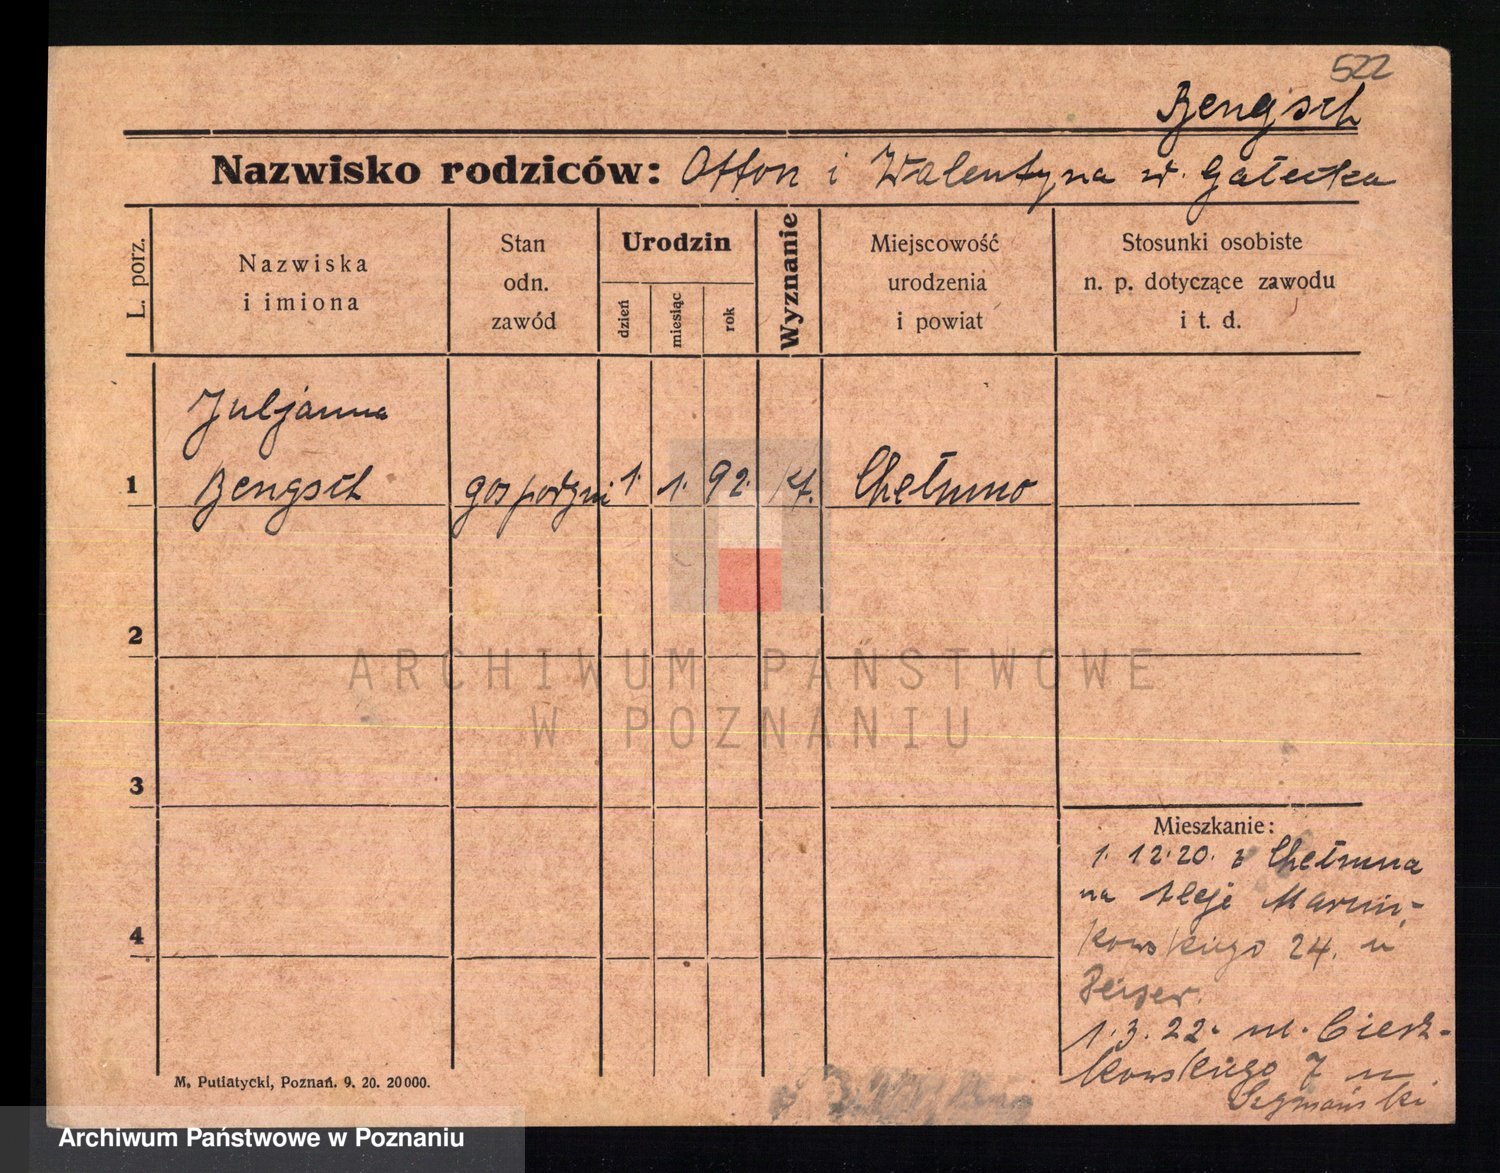 522
Bengsch
Nazwisko rodziców: Otton i Walentyna w. Gałecka
L. porz.
Nazwiska
i imiona
Stan
odn.
zawód
Urodzin
dzień
miesiąc
rok
Wyznanie
Miejscowość
urodzenia
i powiat
Stosunki osobiste
n. p. dotyczące zawodu
i t. d.
Juljanna
1 Bengsch gospodyni 1. 1. 92. kt. Chełmno
2
3
4
Mieszkanie:
1. 12.20. z Chełmna
na Aleje Marcin-
kowskiego 24. u
1.3.22. ul. Ciesz-
kowskiego 7 u
Szymański
M. Putiatycki, Poznań. 9. 20. 20000.
ARCHIWUM PAŃSTWOWE
W POZNANIU
Archiwum Państwowe w Poznaniu